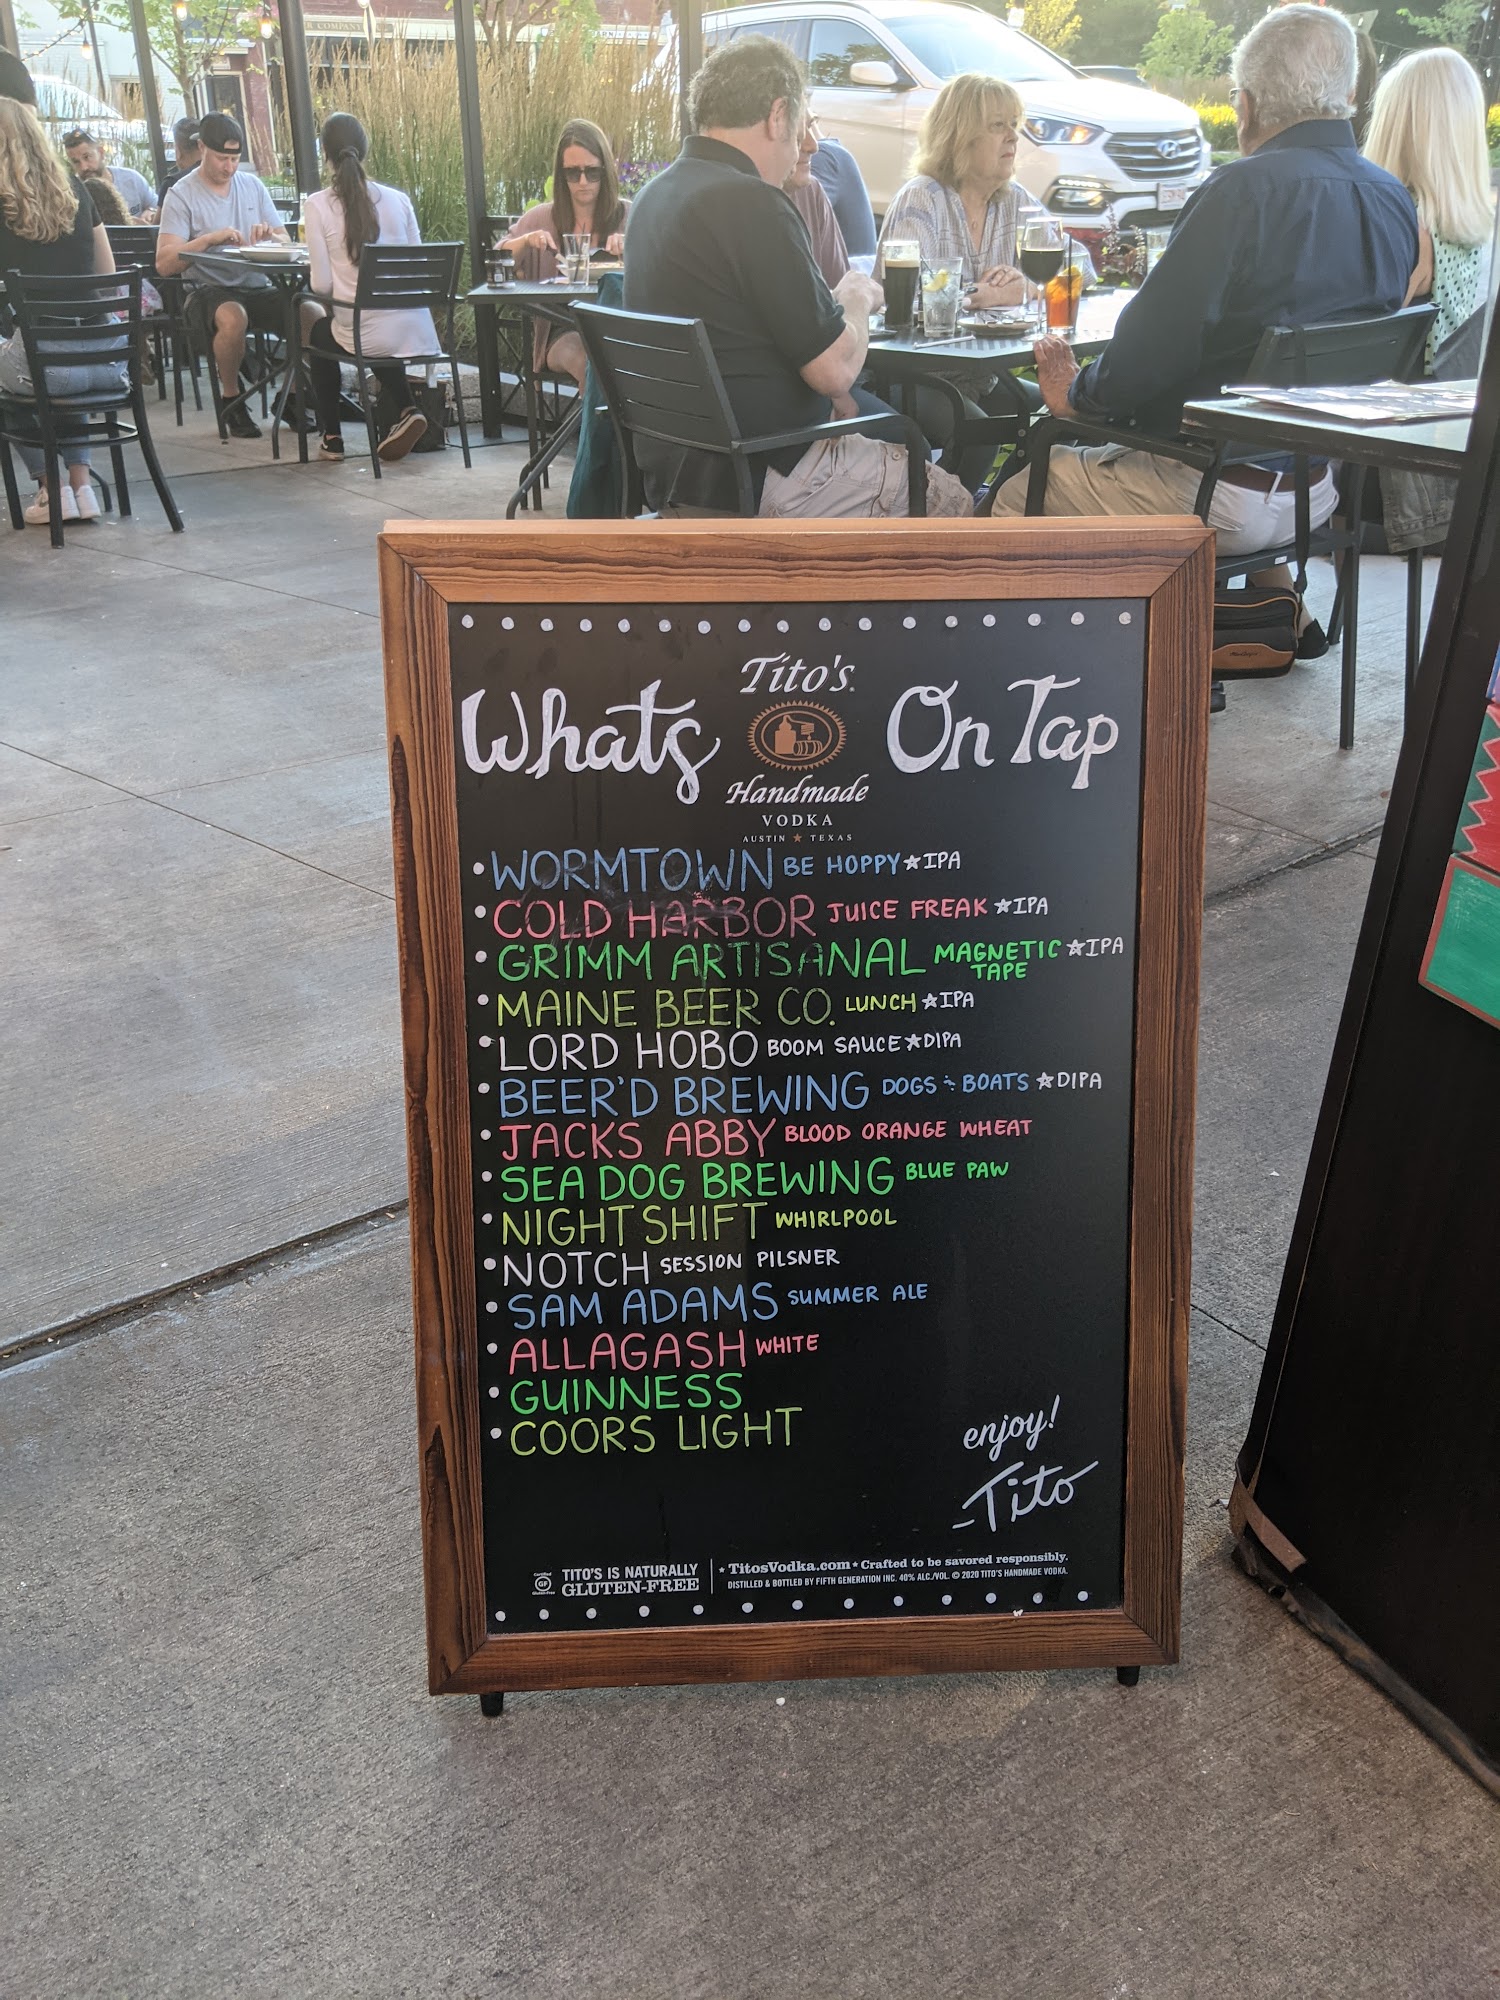 Whats Tito's On Tap
Handmade
VODKA
AUSTIN ★ TEXAS
• WORMTOWN BE HOPPY ☆ IPA
• COLD HARBOR JUICE FREAK ☆ IPA
• GRIMM ARTISANAL MAGNETIC TAPE ☆ IPA
• MAINE BEER CO. LUNCH ☆ IPA
• LORD HOBO BOOM SAUCE ☆ DIPA
• BEER'D BREWING DOGS & BOATS ☆ DIPA
• JACKS ABBY BLOOD ORANGE WHEAT
• SEA DOG BREWING BLUE PAW
• NIGHT SHIFT WHIRLPOOL
• NOTCH SESSION PILSNER
• SAM ADAMS SUMMER ALE
• ALLAGASH WHITE
• GUINNESS
• COORS LIGHT
enjoy!
-Tito
Certified
GF
Gluten-Free
TITO'S IS NATURALLY
GLUTEN-FREE
★ TitosVodka.com ★ Crafted to be savored responsibly.
DISTILLED & BOTTLED BY FIFTH GENERATION INC. 40% ALC./VOL. © 2020 TITO'S HANDMADE VODKA.